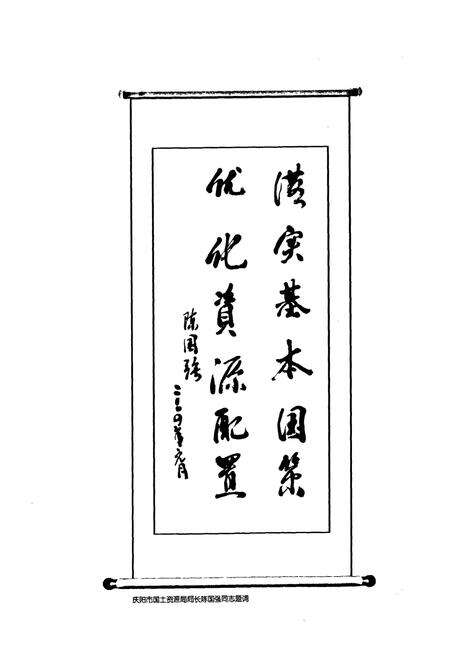 落实基本国策
优化資源配置
陈国强
二〇〇四年元月
庆阳市国土资源局局长陈国强同志题词